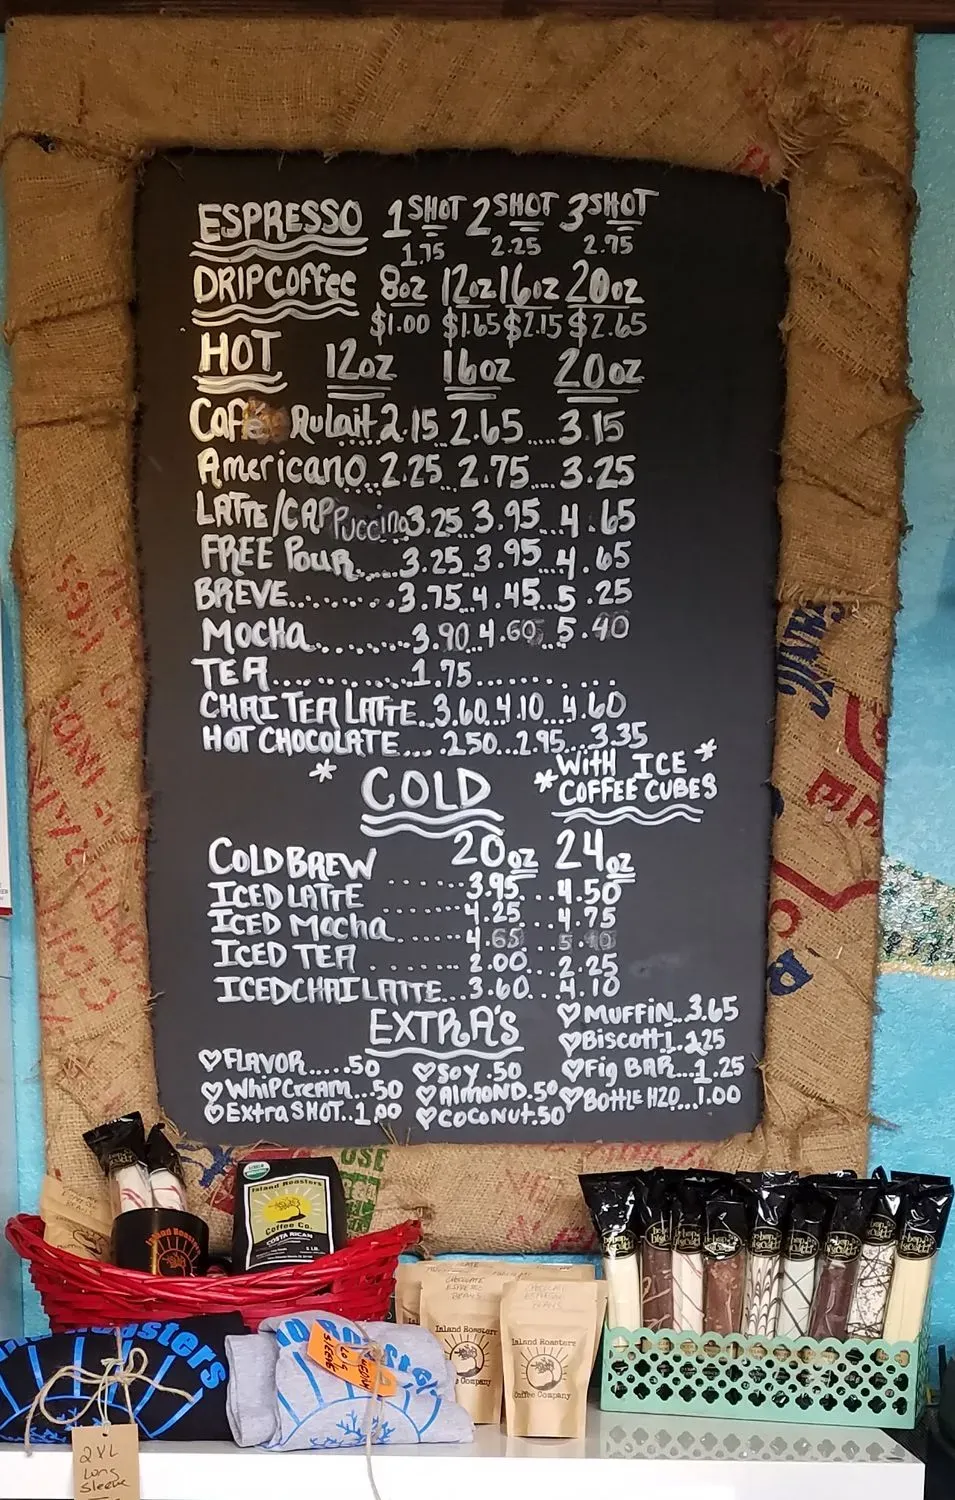 ESPRESSO 1 SHOT 2 SHOT 3 SHOT
1.75 2.25 2.75
DRIP COFFEE 8oz 12oz 16oz 20oz
$1.00 $1.65 $2.15 $2.65
HOT 12oz 16oz 20oz
Café Aulait 2.15 2.65 .... 3.15
Americano.. 2.25... 2.75 .... 3.25
LATTE/CAPPuccino 3.25 3.95 ... 4.65
FREE Pour..... 3.25..3.95...4.65
BREVE........3.75..4.45...5.25
MOCHA........3.90..4.60...5.40
TEA............1.75.......... ...
CHAI TEA LATTE..3.60..4.10...4.60
HOT CHOCOLATE.... .250...2.95...3.35
* COLD * WITH ICE *
COFFEE CUBES
20oz 24oz
COLD BREW ...... 3.95... 4.50
ICED LATTE ...... 4.25 ... 4.75
ICED Mocha ...... 4.65 ... 5.40
ICED TEA ....... 2.00...2.25
ICED CHAI LATTE...3.60...4.10
EXTRA'S
♡FLAVOR.....50
♡WHIPCREAM...50
♡EXTRA SHOT..1.00
♡SOY.50
♡ALMOND.50
♡COCONUT.50
♡MUFFIN..3.65
♡BISCOTTI.225
♡Fig BAR...1.25
♡BOTTLE H2O...1.00
USE
Island Roasters
Coffee Co.
COSTA RICAN
Island Roasters
Island Roasters
Coffee Company
Island Roasters
Coffee Company
CHOCOLATE
ESPRESSO
BEANS
CHOCOLATE
ESPRESSO
BEANS
Roasters
2XL
Long
Sleeve
biscotti